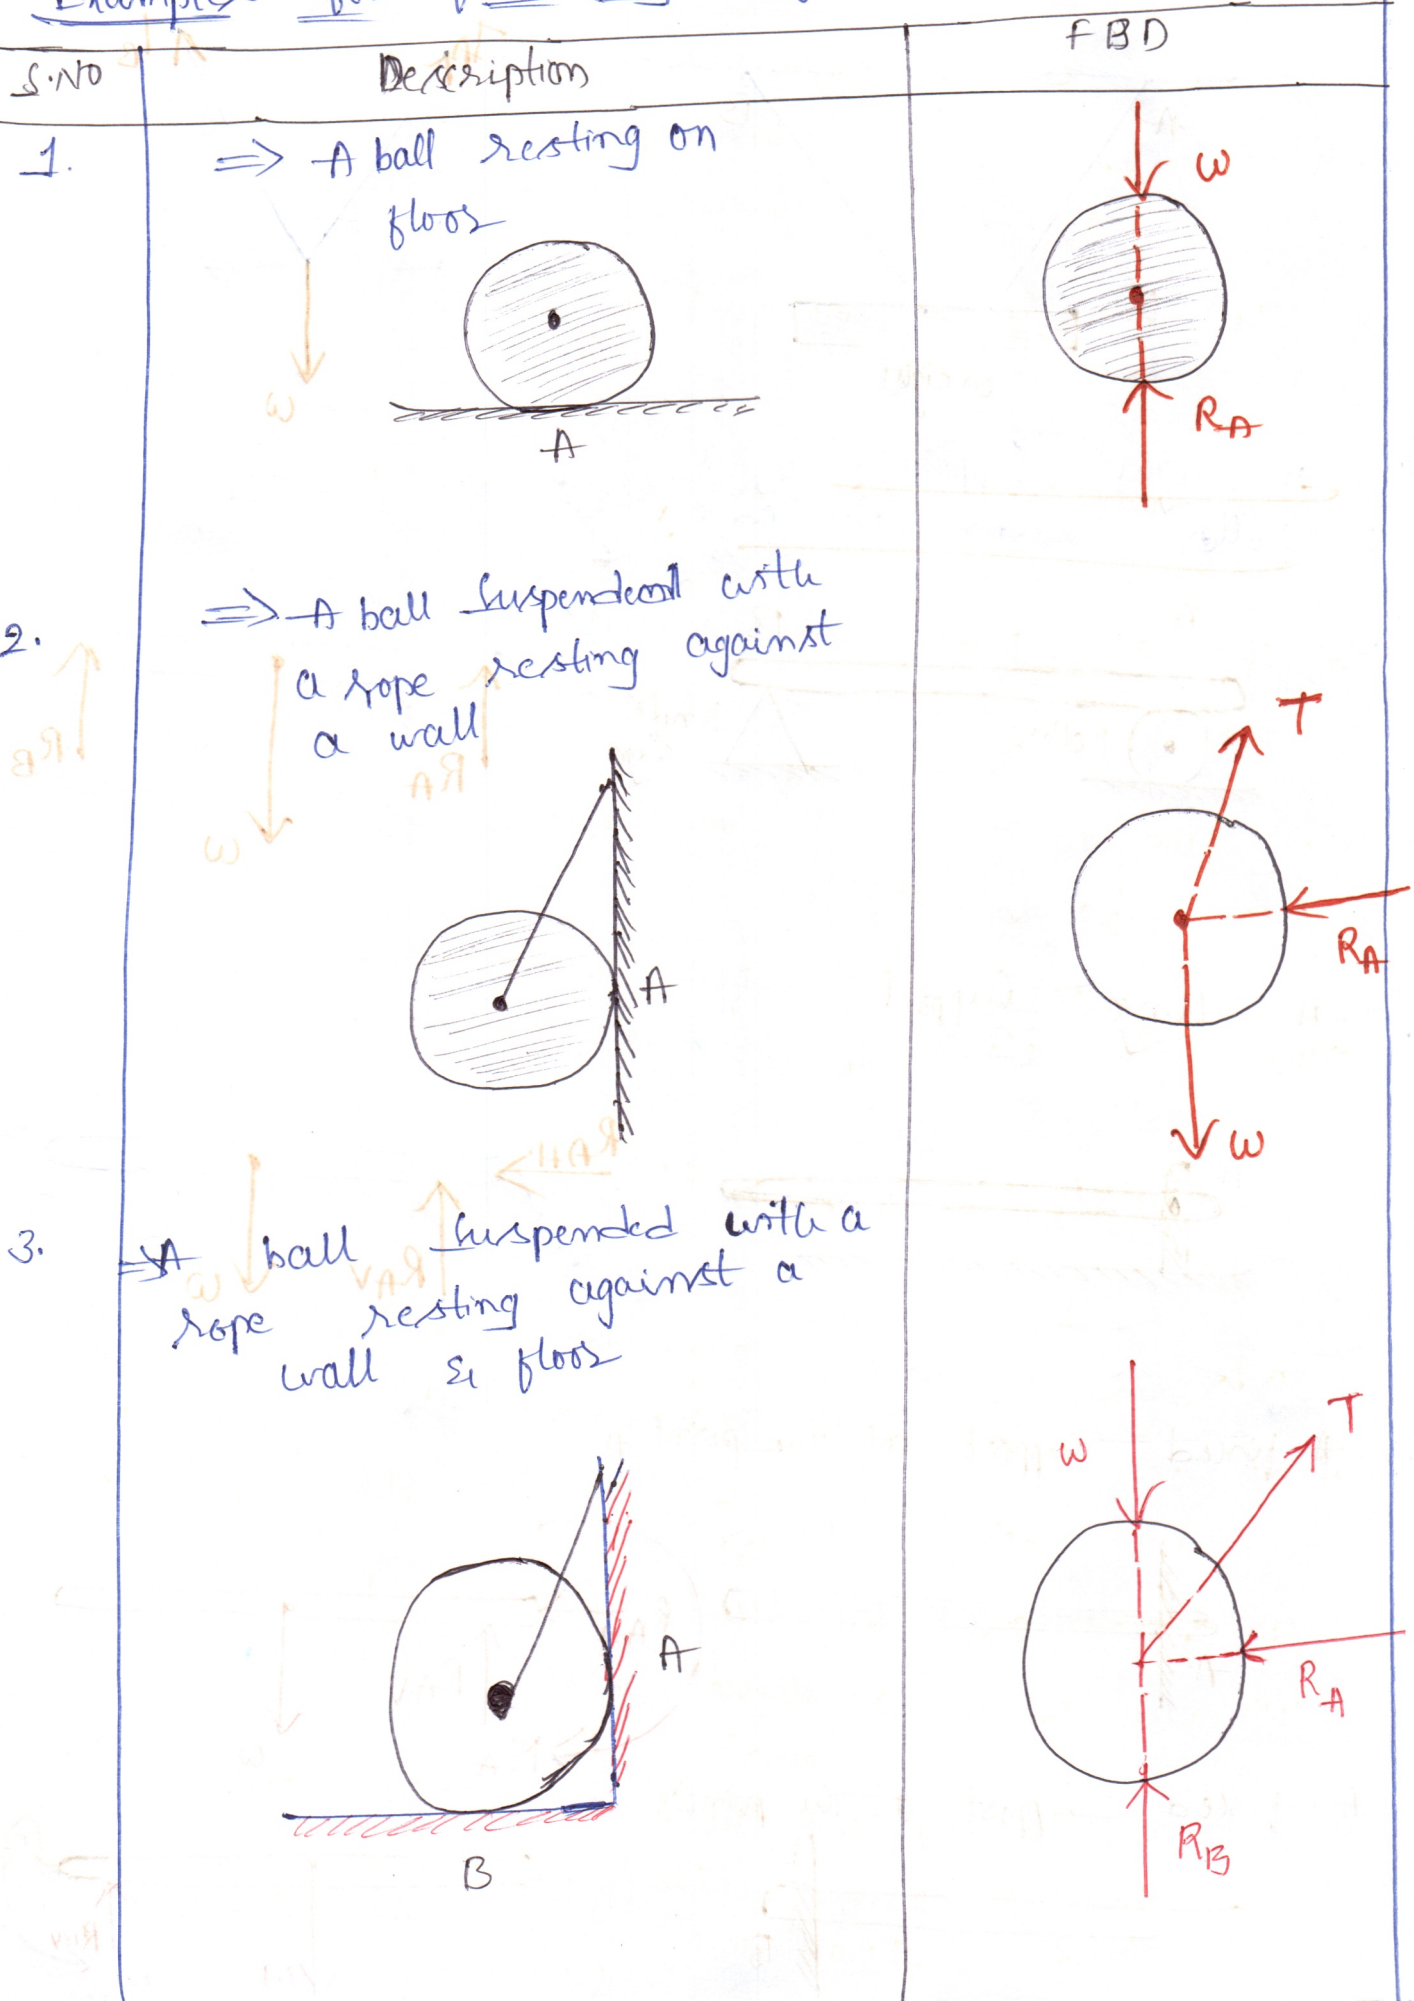 S.NO Description FBD
1. ⇒ A ball resting on
floor
W
R_A
A
2. ⇒ A ball suspended with
a rope resting against
a wall
T
A
R_A
W
3. ⇒ A ball suspended with a
rope resting against a
wall & floor
W
T
A
R_A
R_B
B